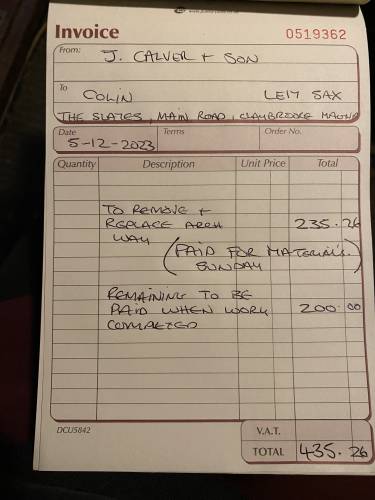 Invoice 0519362
From: J. CALVER + SON
To COLIN LE17 5AX
THE SLATES, MAIN ROAD, CLAYBROOKE MAGNA
Date Terms Order No.
5-12-2023
Quantity Description Unit Price Total
TO REMOVE +
REPLACE ARCH 235.26
WAY
(PAID FOR MATERIALS
SUNDAY)
REMAINING TO BE
PAID WHEN WORK 200.00
COMPLETED
DCU5842
V.A.T.
TOTAL 435.26